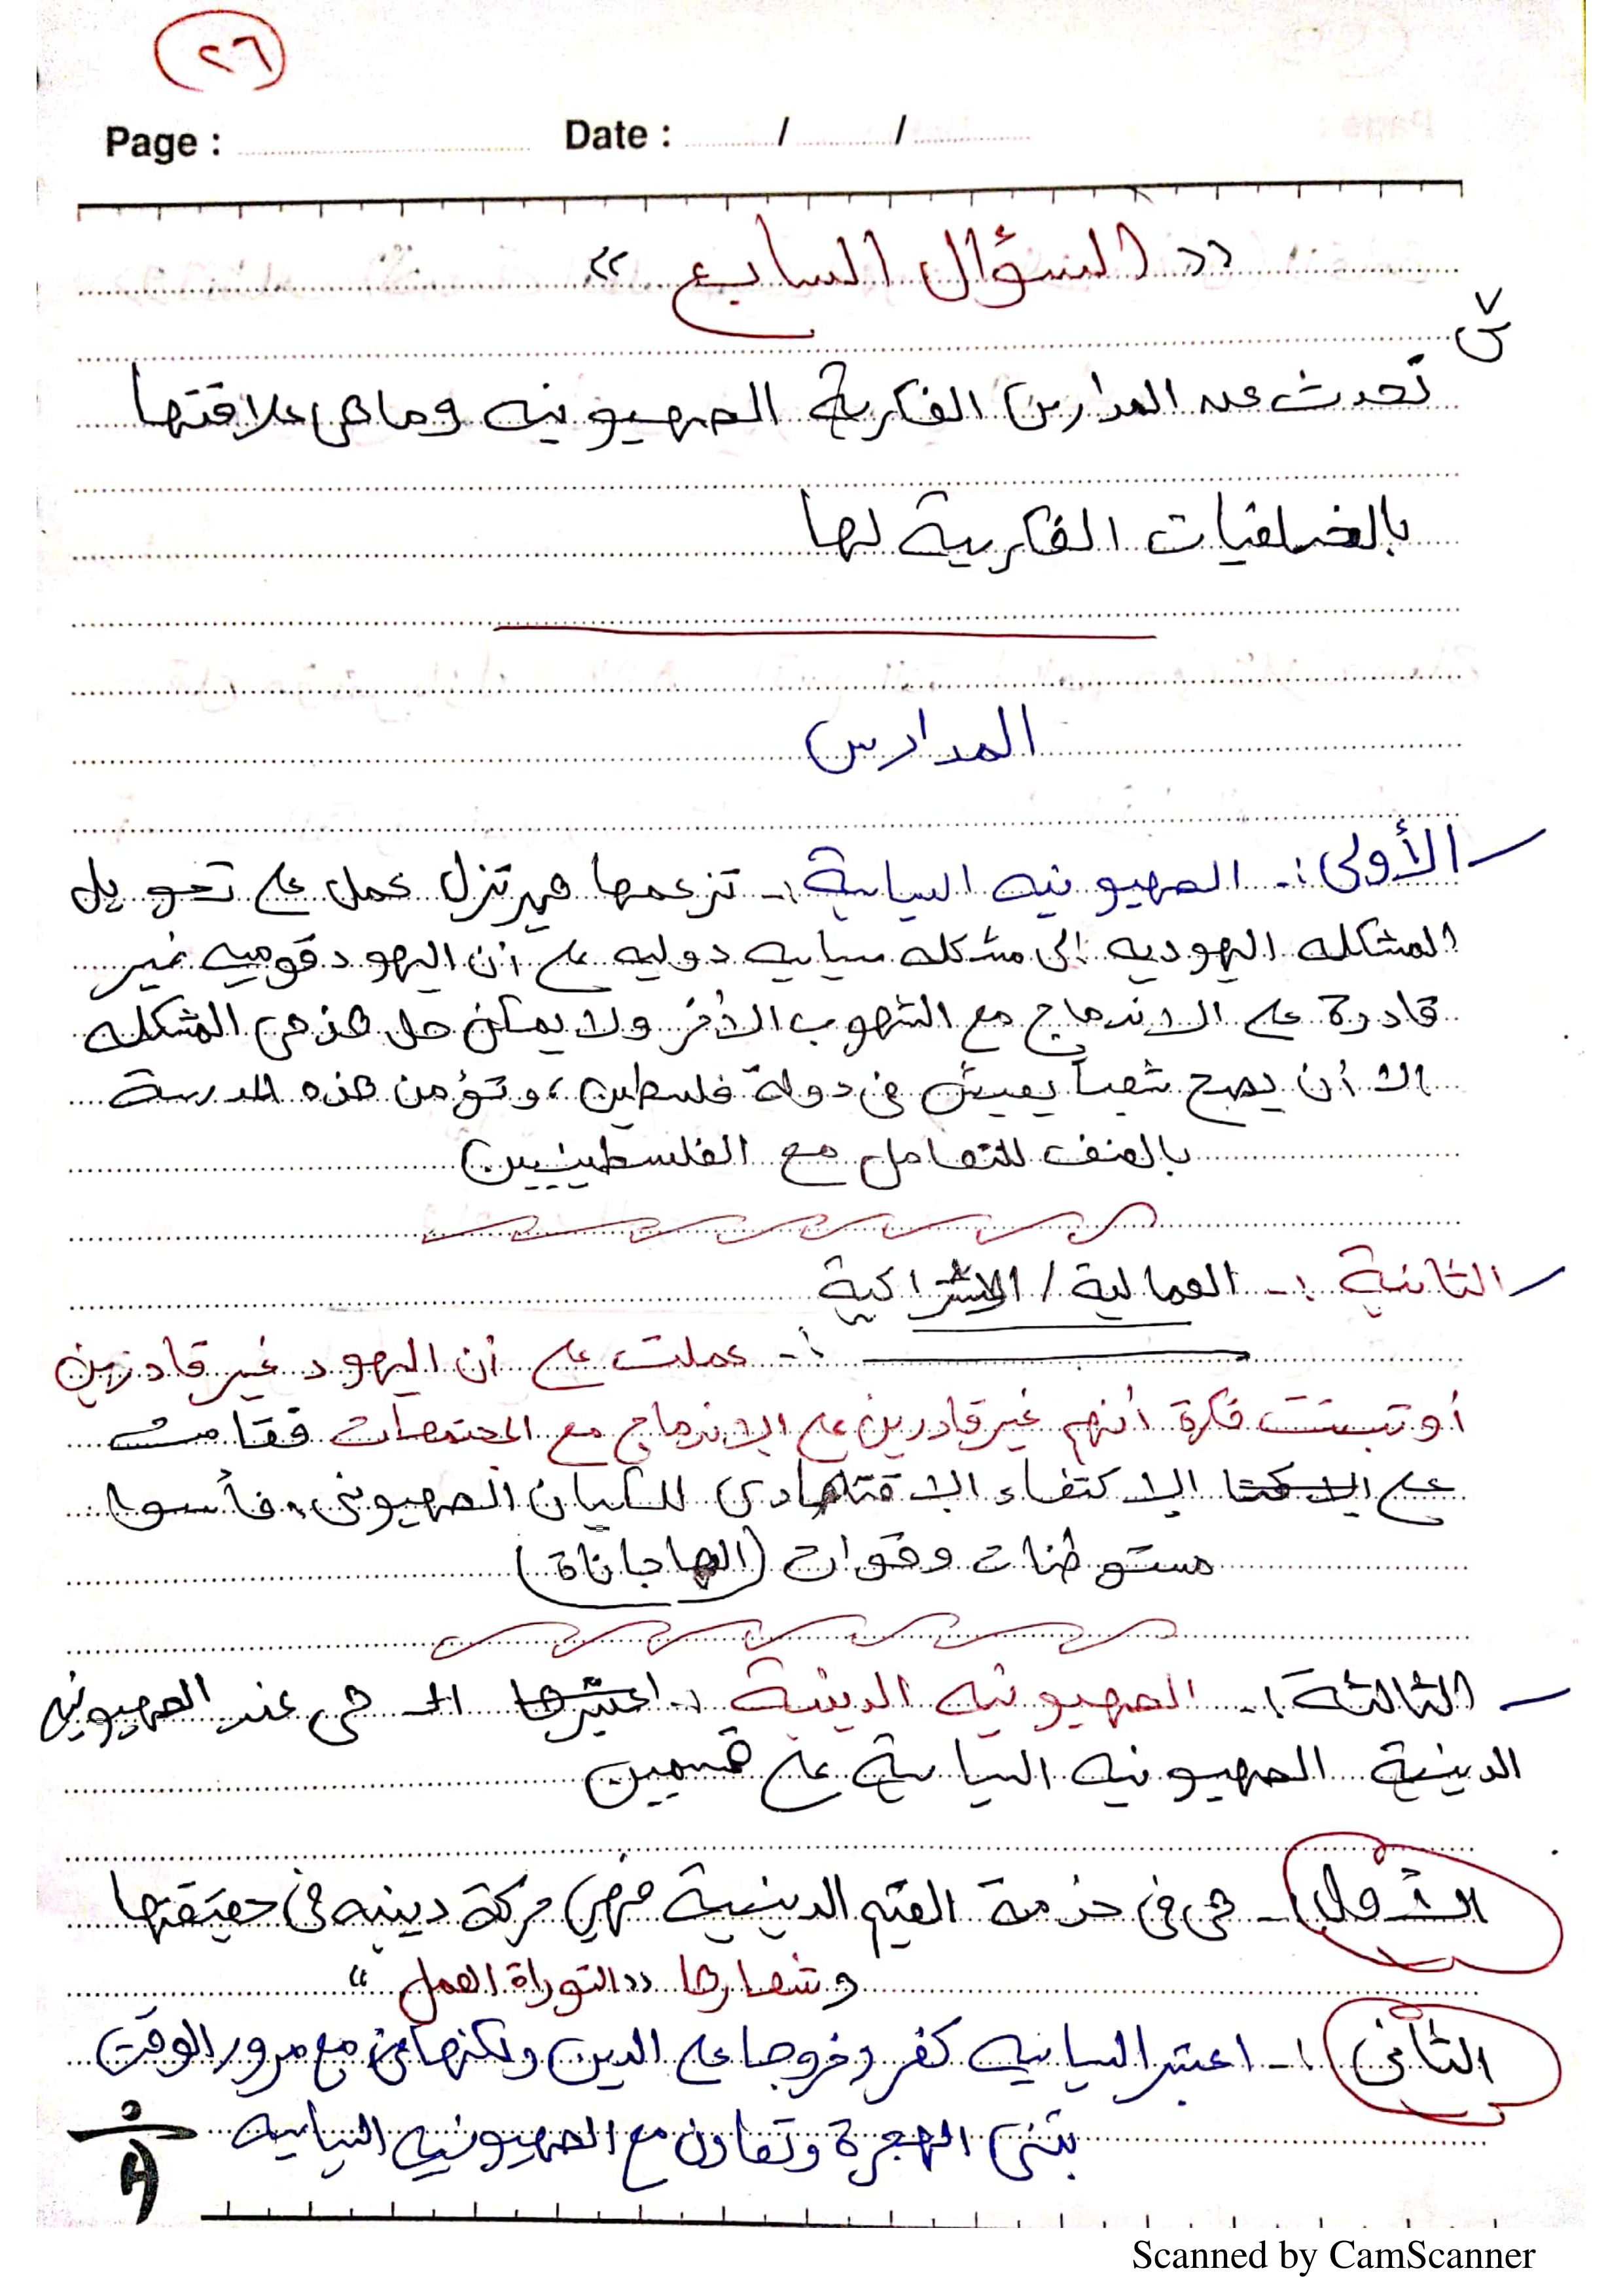 ٢٦
Page : Date : / /
« السؤال السابع »
س٧
تحدث عن المدارس الفكرية الصهيونيه وما هى علاقتها
بالخلفيات الفكرية لها
المدارس
الأولى :- الصهيونيه السياسية :- تزعمها هيرتزل عمل على تحويل
المشكله اليهوديه إلى مشكله سياسيه دوليه على أن اليهود قوميه غير
قادرة على الاندماج مع الشعوب الأخر ولا يمكن حل هذه المشكله
الا أن يصبح شعباً يعيش فى دولة فلسطين، وتؤمن هذه المدرسة
بالعنف للتعامل مع الفلسطينيين
الثانية :- العمالية / الاشتراكية
:- عملت على أن اليهود غير قادرين
أو تبنت فكرة أنهم غير قادرين على الاندماج مع المجتمعات فقامت
على الاكتفاء الاقتصادى للكيان الصهيونى، فأسسوا
مستوطنات وقوات (الهاجاناة)
الثالثة :- الصهيونيه الدينية :- هى عند الصهيونيه
الدينية الصهيونيه السياسية على قسمين
الأول :- هى فى خدمة القيم الدينية فهى حركة دينيه فى حقيقتها
وشعارها « التوراة العمل »
الثانى :- اعتبر السياسيه كفر وخروجا على الدين ولكنها مع مرور الوقت
بتبنى الهجرة وتعاون مع الصهيونيه السياسيه
Scanned by CamScanner